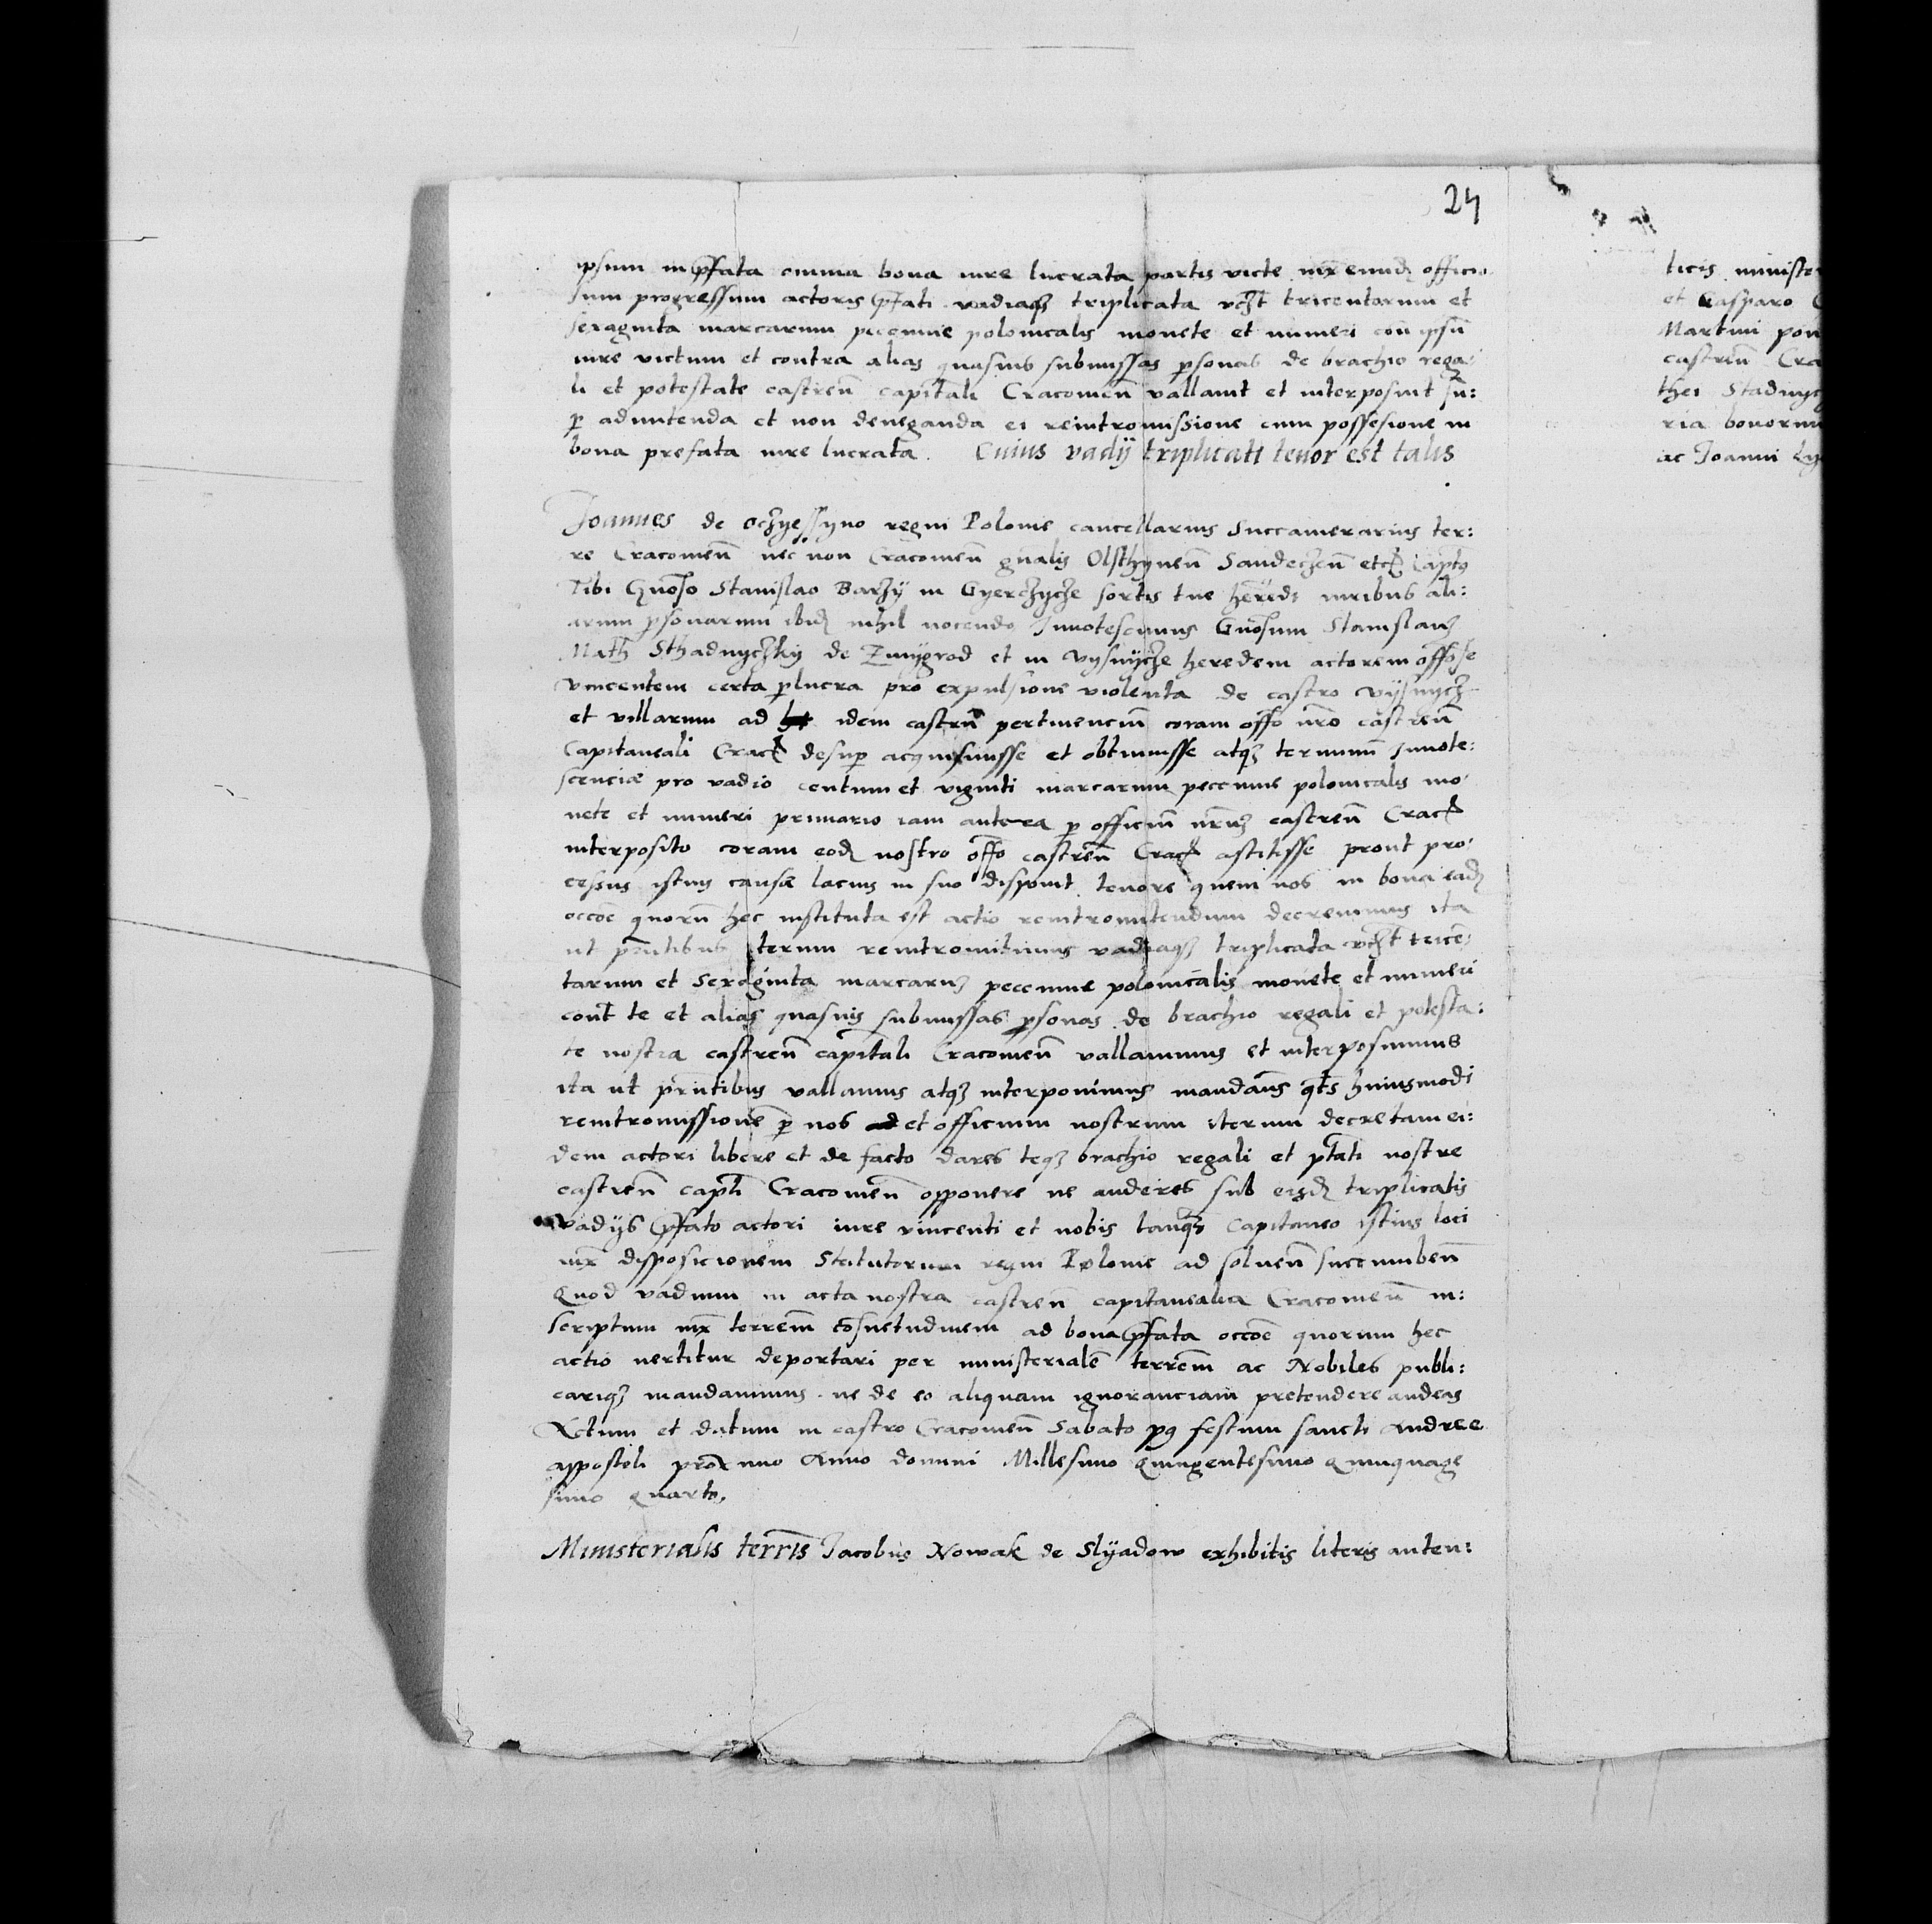 24
ipsum in p̄fata omnia bona iure lucrata partis victe iux̄ eiuidꝫ officio
sum progressum actoris p̄fati vadiaqꝫ triplicata vꝫlt tricentarum et
sexaginta marcarum pecunie polonicalis monete et numeri con ipsū
iure victum et contra alias quasuis submissas p̄sonas de brachio rega
li et potestate castreñ capītali Cracouieñ vallauit et interposuit su:
p̄ admittenda et non deneganda ei reintromissione cum possesione in
bona prefata iure lucrata. Cuius vadÿ triplicati tenor est talis
Joannes de oczyessyno regni Polonie cancellarius Succamerarius ter:
re Cracouieñ nec non Cracouieñ gñalis Olsthyneñ Sandeczeñ etcꝭ Capꝫtꝰ
Tibi Gnoso Stanislao Barzÿ in Gyerczycze sortis tue heredi iuribus ali:
arum p̄sonarum ibidꝫ nihil nocendo Innotescimus Gnosum Stanislauꝫ
Math̄ Sthadnyczkÿ de Zmÿgrod et in vysnÿcze heredem actorem offōse
vincentem certa p̄lucra pro expulsione violenta de castro vÿsnycz
et villarum ad idem castrū pertinenciū coram offō nr̄o castreñ
Capitaneali Cracꝭ desup̄ acquisiuisse et obtinuisse atqꝫ terminū innote:
scenciæ pro vadio centum et viginti marcarum pecunie polonicalis mo
nete et numeri primario iam antea p̄ officiū nr̄uꝫ castreñ Cracꝭ
interposito coram eodꝫ nostro offō castreñ Cracꝭ astitisse prout pro
cessus istius causæ lacius in suo disponit tenore quem nos in bona eadꝫ
occōe quorū hec instituta est actio reintromitendum decreuimus ita
ut p̄ntibus iterum reintromitimus vadiaqꝫ triplicata vꝫlt tricē
tarum et sexaginta marcaruꝫ pecunie polonicalis monete et numeri
cont̄ te et alias quasuis submissas p̄sonas de brachio regali et potesta:
te nostra castreñ capitali Cracouieñ vallauimus et interposuimus
ita ut p̄rntibus vallamus atqꝫ interponimus mandañs qt̄s huiusmodi
reintromissionē p̄ nos et officium nostrum iterum decretam ei:
dem actori libere et de facto dares teqꝫ brachio regali et p̄tati nostre
castreñ capt̄i Cracouieñ opponere ne auderes sub eisdꝫ triplicatis
vadÿs p̄fato actori iure vincenti et nobis tanqꝫ Capitaneo istius loci
iux̄ disposicionem Statutorum regni Polonie ad soluen̄ succumbeñ
Quod vadium in acta nostra castreñ capitanealia Cracouieñ in:
scriptum iux̄ terrem̄ cōsuetudinem ad bona p̄fata occōe quorum hec
actio vertitur deportari per ministerialē terrem̄ ac Nobiles publi:
cariqꝫ mandauimus ne de eo aliquam ignoranciam pretendere audeas
Actum et datum in castro Cracouieñ Sabato pꝰ festum sancti Andree
appostoli proximo Anno domini Millesimo Quingentesimo Quinquage
simo Quarto,
Ministerialis terrīs Jacobus Nowak de Slÿadow exhibitis literis auten:
ticis ministe
et Gasparo
Martini pon
castreñ Cra
thei Stadnyc
ria bonorum
ac Joanni